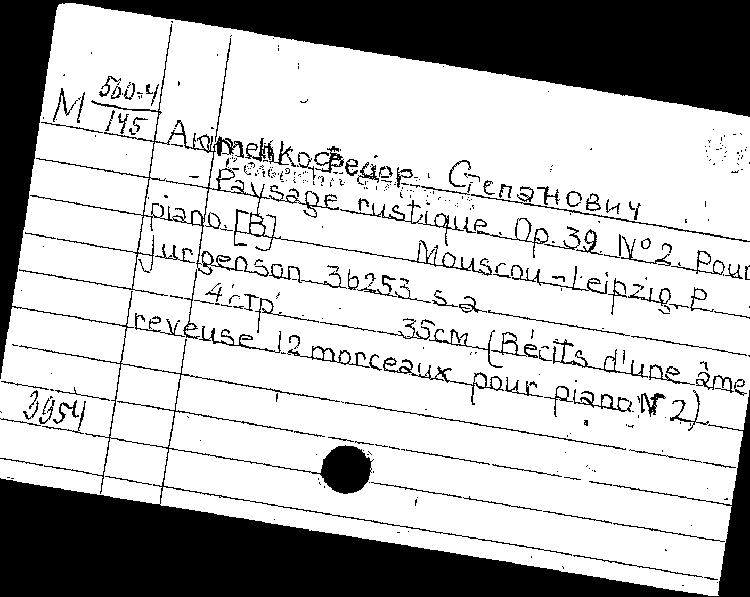 М 560-4/145
Акіменко Федор Степанович
- Paysage rustique. Op. 39 N°2. Pour
piano. [B] Mouscou-Leipzig. P.
Jurgenson 36253 s.a.
4 стр. 35см (Récits d'une âme
reveuse 12 morceaux pour piano N 2)
3954